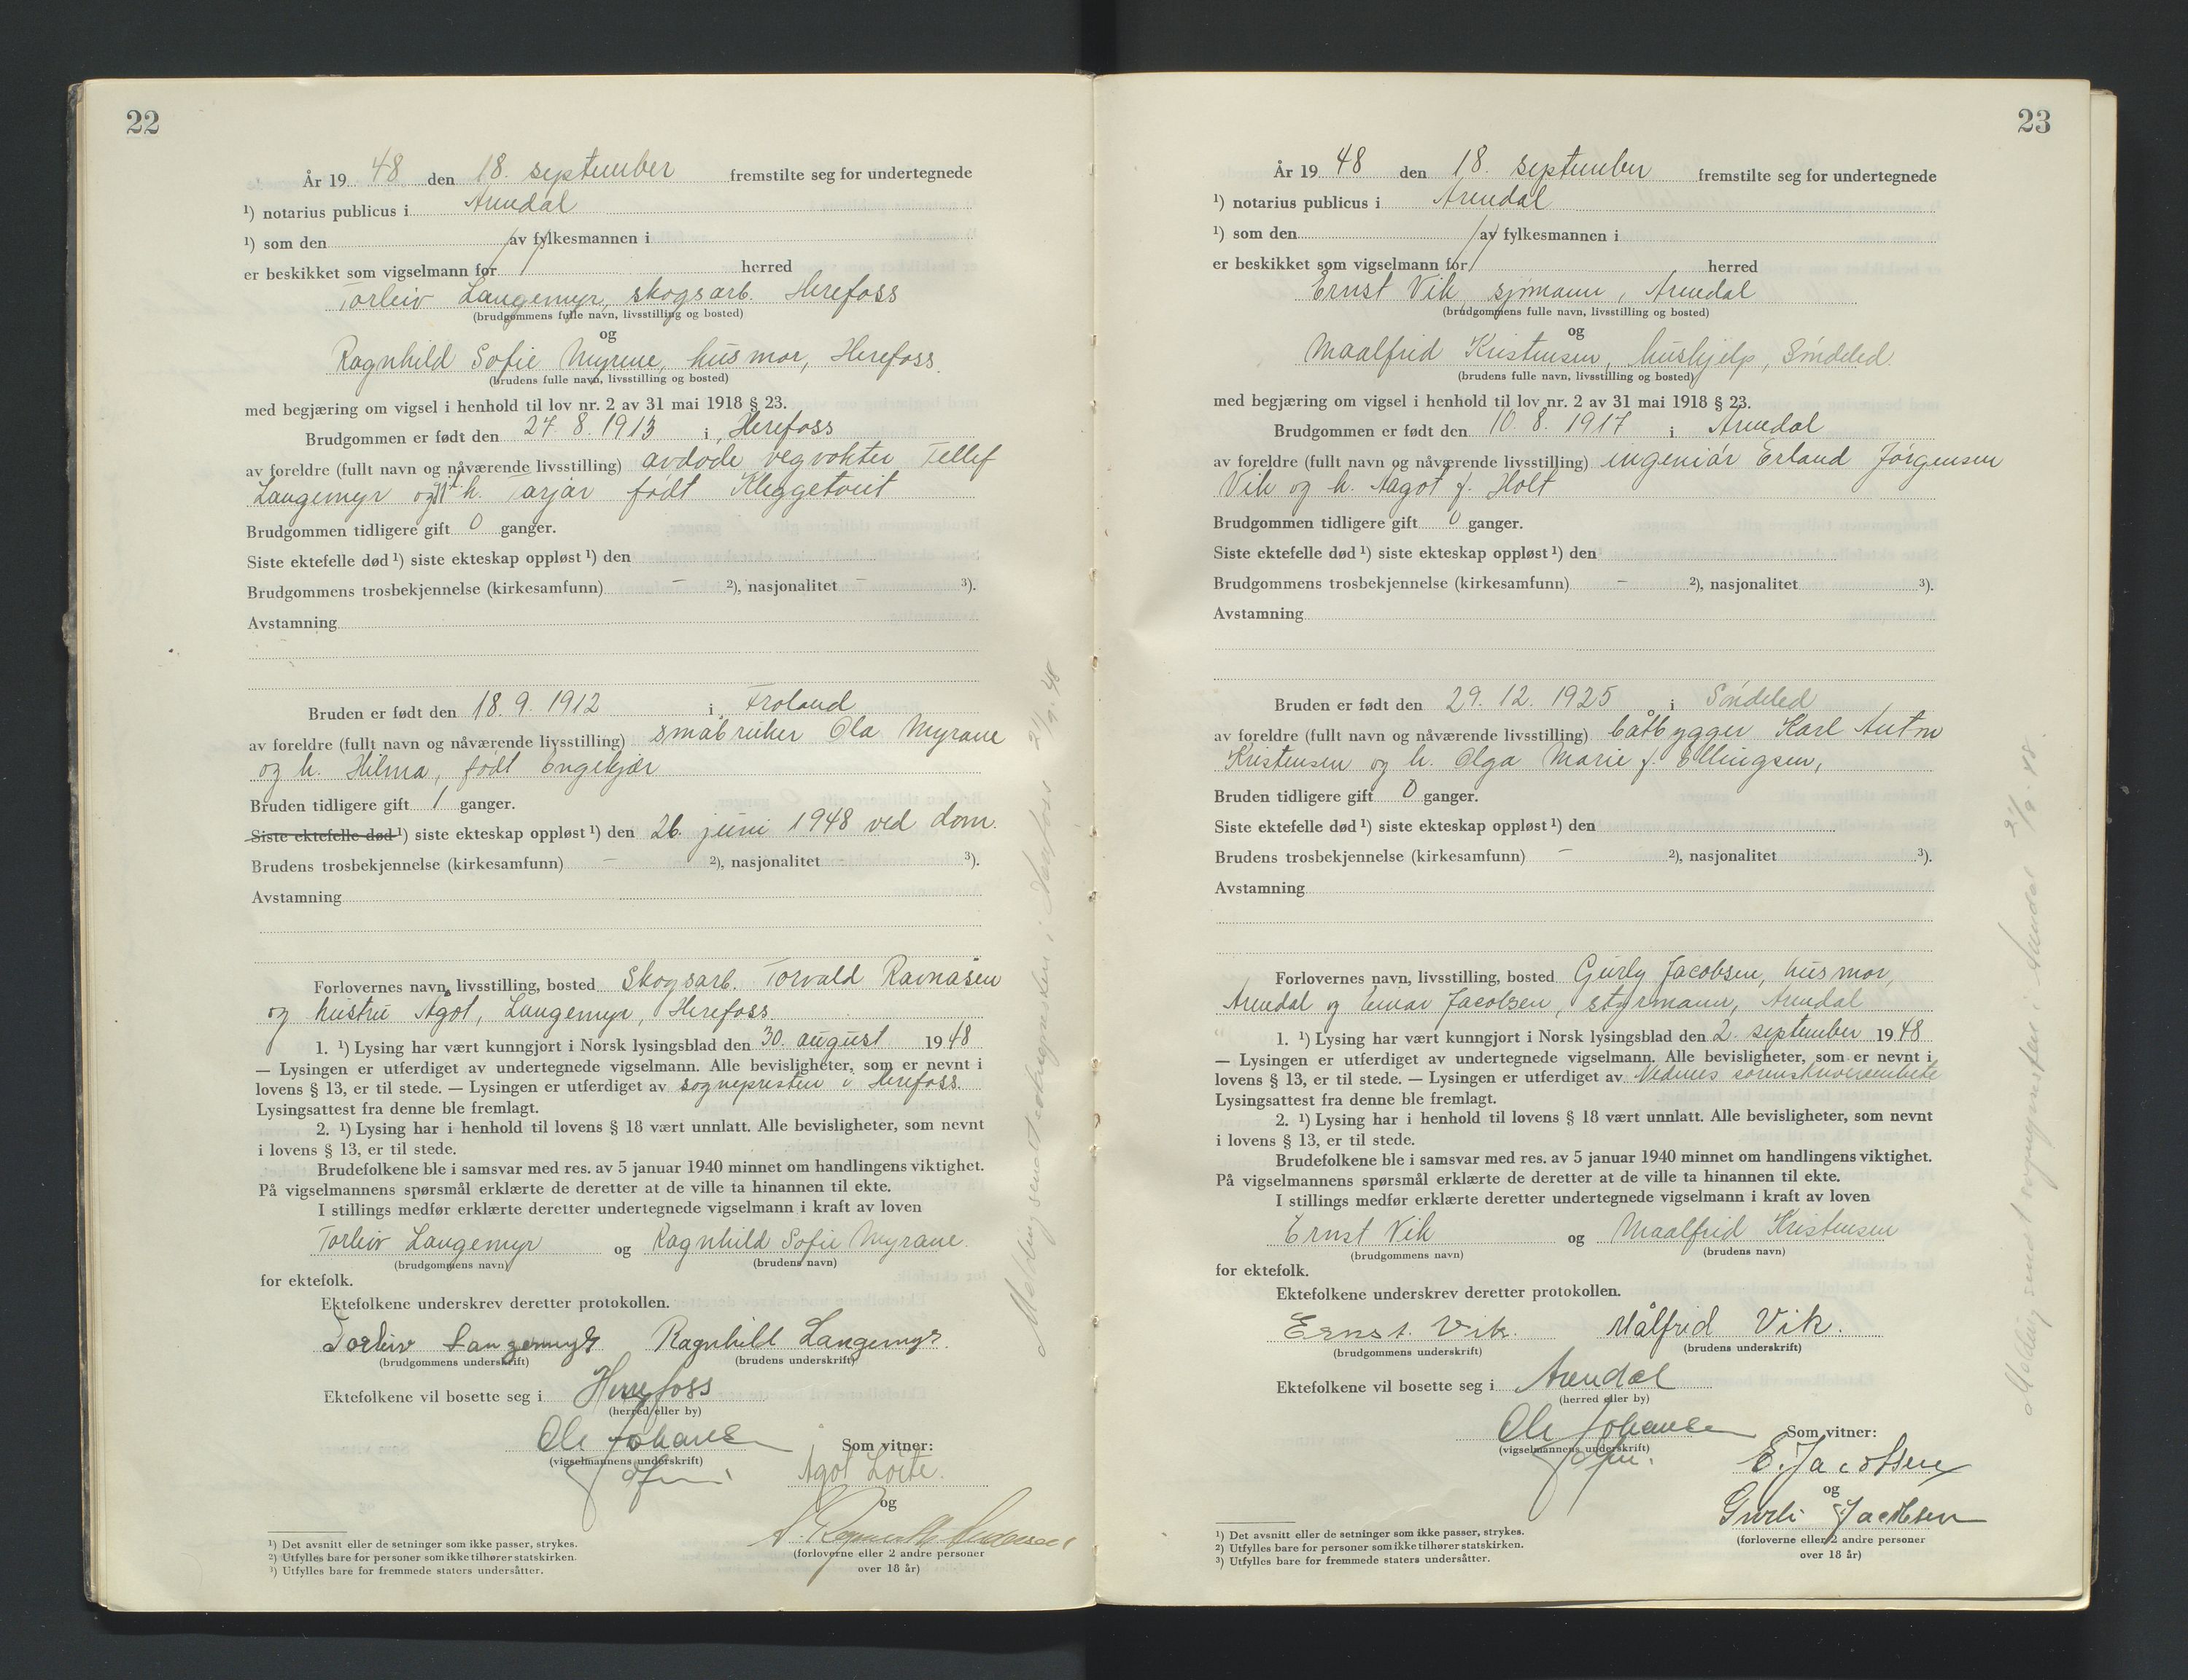 22
År 19 48 den 18. september fremstilte seg for undertegnede
¹) notarius publicus i Arendal
¹) som den av fylkesmannen i
er beskikket som vigselmann for herred
Torleiv Langemyr, skogsarb. Herefoss
(brudgommens fulle navn, livsstilling og bosted)
og
Ragnhild Sofie Myrene, husmor, Herefoss.
(brudens fulle navn, livsstilling og bosted)
med begjæring om vigsel i henhold til lov nr. 2 av 31 mai 1918 § 23.
Brudgommen er født den 27. 8. 1913 i Herefoss
av foreldre (fullt navn og nåværende livsstilling) avdøde vegvokter Tellef
Langemyr og h. Tarjær født Kleggetveit
Brudgommen tidligere gift 0 ganger.
Siste ektefelle død ¹) siste ekteskap oppløst ¹) den
Brudgommens trosbekjennelse (kirkesamfunn) – ²), nasjonalitet – ³).
Avstamning
Bruden er født den 18. 9. 1912 i Froland
av foreldre (fullt navn og nåværende livsstilling) småbruker Ola Myrane
og h. Hilma, født Engekjær
Bruden tidligere gift 1 ganger.
Siste ektefelle død ¹) siste ekteskap oppløst ¹) den 26. juni 1948 ved dom.
Brudens trosbekjennelse (kirkesamfunn) – ²), nasjonalitet – ³).
Avstamning
Forlovernes navn, livsstilling, bosted Skogsarb. Torvald Ravnåsen
og hustru Ågot, Langemyr, Herefoss.
1. ¹) Lysing har vært kunngjort i Norsk lysingsblad den 30. august 19 48
— Lysingen er utferdiget av undertegnede vigselmann. Alle bevisligheter, som er nevnt i
lovens § 13, er til stede. — Lysingen er utferdiget av sognepresten i Herefoss.
Lysingsattest fra denne ble fremlagt.
2. ¹) Lysing har i henhold til lovens § 18 vært unnlatt. Alle bevisligheter, som nevnt
i lovens § 13, er til stede.
Brudefolkene ble i samsvar med res. av 5 januar 1940 minnet om handlingens viktighet.
På vigselmannens spørsmål erklærte de deretter at de ville ta hinannen til ekte.
I stillings medfør erklærte deretter undertegnede vigselmann i kraft av loven
Torleiv Langemyr og Ragnhild Sofie Myrane.
(brudgommens navn) (brudens navn)
for ektefolk.
Ektefolkene underskrev deretter protokollen.
Torleiv Langemyr Ragnhild Langemyr.
(brudgommens underskrift) (brudens underskrift)
Ektefolkene vil bosette seg i Herefoss
(herred eller by)
Ole Johansen
(vigselmannens underskrift)
Som vitner:
Ågot Loite.
og
(forloverne eller 2 andre personer
over 18 år)
¹) Det avsnitt eller de setninger som ikke passer, strykes.
²) Utfylles bare for personer som ikke tilhører statskirken.
³) Utfylles bare for fremmede staters undersåtter.
Melding sendt soknepresten i Herefoss 21/9. 48
23
År 19 48 den 18. september fremstilte seg for undertegnede
¹) notarius publicus i Arendal
¹) som den av fylkesmannen i
er beskikket som vigselmann for herred
Ernst Vik, sjømann, Arendal
(brudgommens fulle navn, livsstilling og bosted)
og
Maalfrid Kristensen, hushjelp, Søndeled.
(brudens fulle navn, livsstilling og bosted)
med begjæring om vigsel i henhold til lov nr. 2 av 31 mai 1918 § 23.
Brudgommen er født den 10. 8. 1917 i Arendal
av foreldre (fullt navn og nåværende livsstilling) ingeniør Erland Jørgensen
Vik og h. Aagot f. Holt
Brudgommen tidligere gift 0 ganger.
Siste ektefelle død ¹) siste ekteskap oppløst ¹) den
Brudgommens trosbekjennelse (kirkesamfunn) – ²), nasjonalitet ³).
Avstamning
Bruden er født den 29. 12. 1925 i Søndeled
av foreldre (fullt navn og nåværende livsstilling) båtbygger Karl Anton
Kristensen og h. Olga Marie f. Ellingsen,
Bruden tidligere gift 0 ganger.
Siste ektefelle død ¹) siste ekteskap oppløst ¹) den
Brudens trosbekjennelse (kirkesamfunn) – ²), nasjonalitet ³).
Avstamning
Forlovernes navn, livsstilling, bosted Gurly Jacobsen, husmor,
Arendal og Einar Jacobsen, styrmann, Arendal
1. ¹) Lysing har vært kunngjort i Norsk lysingsblad den 2. september 19 48
— Lysingen er utferdiget av undertegnede vigselmann. Alle bevisligheter, som er nevnt i
lovens § 13, er til stede. — Lysingen er utferdiget av Nedenes sorenskriverembete
Lysingsattest fra denne ble fremlagt.
2. ¹) Lysing har i henhold til lovens § 18 vært unnlatt. Alle bevisligheter, som nevnt
i lovens § 13, er til stede.
Brudefolkene ble i samsvar med res. av 5 januar 1940 minnet om handlingens viktighet.
På vigselmannens spørsmål erklærte de deretter at de ville ta hinannen til ekte.
I stillings medfør erklærte deretter undertegnede vigselmann i kraft av loven
Ernst Vik og Maalfrid Kristensen
(brudgommens navn) (brudens navn)
for ektefolk.
Ektefolkene underskrev deretter protokollen.
Ernst. Vik. Målfrid Vik.
(brudgommens underskrift) (brudens underskrift)
Ektefolkene vil bosette seg i Arendal
(herred eller by)
Ole Johansen
(vigselmannens underskrift)
Som vitner:
E. Jacobsen
og
Gurli Jacobsen
(forloverne eller 2 andre personer
over 18 år)
¹) Det avsnitt eller de setninger som ikke passer, strykes.
²) Utfylles bare for personer som ikke tilhører statskirken.
³) Utfylles bare for fremmede staters undersåtter.
Melding sendt sognepresten i Arendal 21/9. 48.